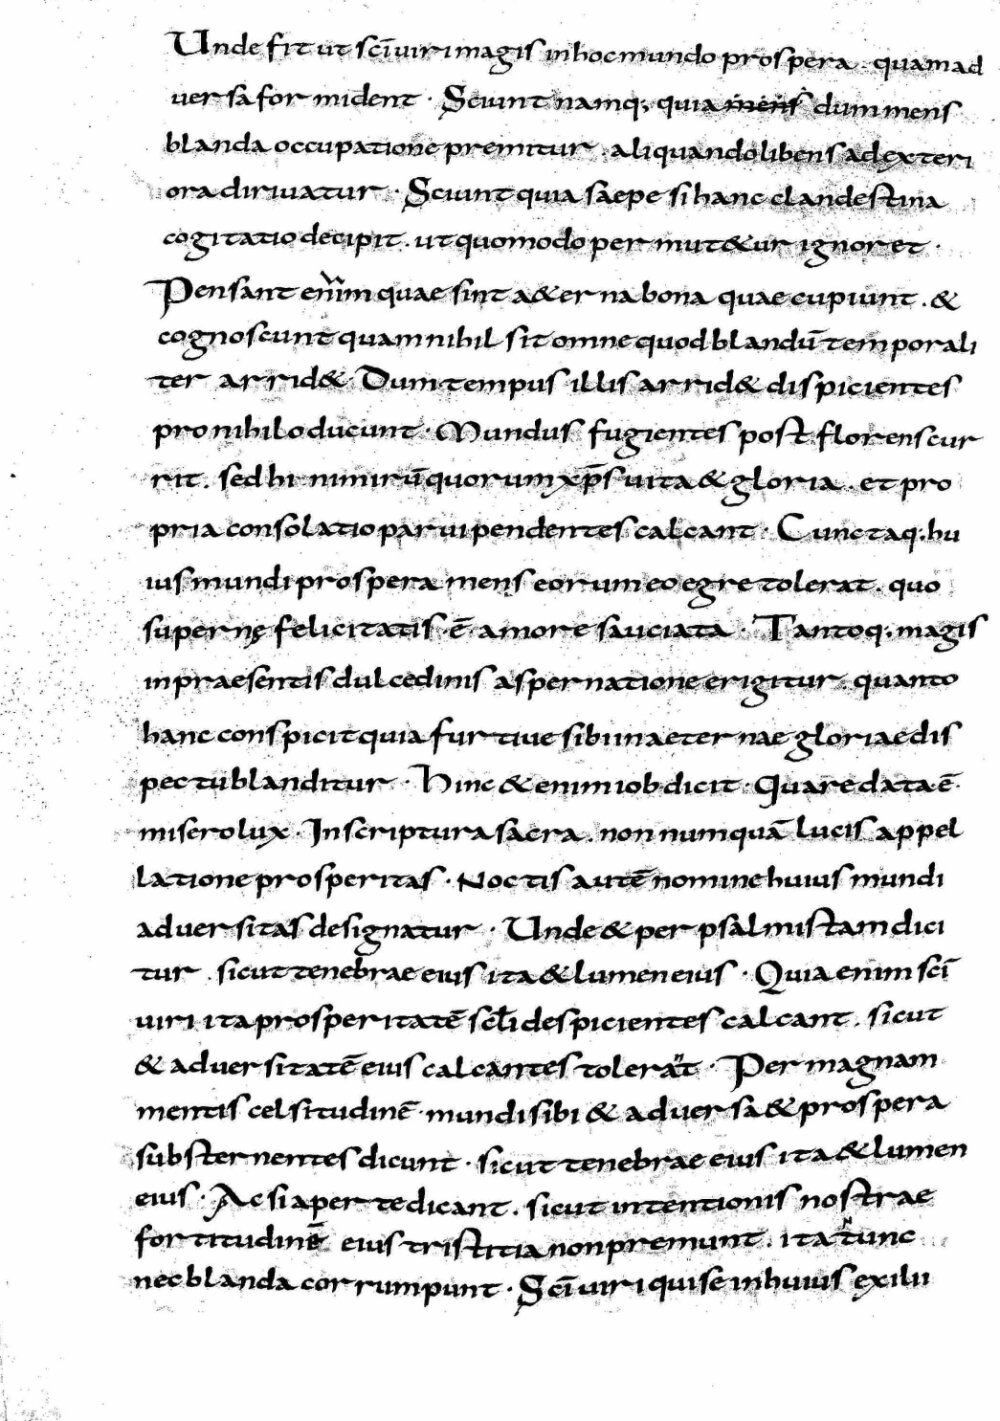 Unde fit ut sc̄i uiri magis in hoc mundo prospera . quam ad
uersa formident · Sciunt namq; quia mens dum mens
blanda occupatione premitur . aliquando libens ad exteri
ora diriuatur · Sciunt quia saepe si hanc clandestina
cogitatio decipit . ut quomodo permut&ur ignoret ·
Pensant enim quae sint a&erna bona quae cupiunt . &
cognoscunt quam nihil sit omne quod blandū temporali
ter arrid& · Dum tempus illis arrid& dispicientes
pro nihilo ducunt · Mundus fugientes post florens cur
rit . sed hi nimirū quorum xp̄s uita & gloria . et pro
pria consolatio paruipendentes calcant · Cunctaq; hu
ius mundi prospera mens eorum eo egre tolerat . quo
supernę felicitatis ē amore sauciata · Tantoq; magis
in praesentis dulcedinis aspernatione erigitur . quanto
hanc conspicit quia furtiue sibi in aeternae gloriae dis
pectu blanditur · Hinc & enim iob dicit · Quare data ē
misero lux · In scriptura sacra . non numquā lucis appel
latione prosperitas · Noctis autē nomine huius mundi
aduersitas designatur · Unde & per psalmistam dici
tur . sicut tenebrae eius ita & lumen eius · Quia enim sc̄i
uiri ita prosperitatē sc̄li despicientes calcant . sicut
& aduersitatē eius calcantes tolerat · Per magnam
mentis celsitudinē mundi sibi & aduersa & prospera
substernentes dicunt · sicut tenebrae eius ita & lumen
eius · Ac si aperte dicant . sicut intentionis nostrae
fortitudinē eius tristitia non premunt . ita nunc
nec blanda corrumpunt · Sc̄i uiri qui se in huius exilii